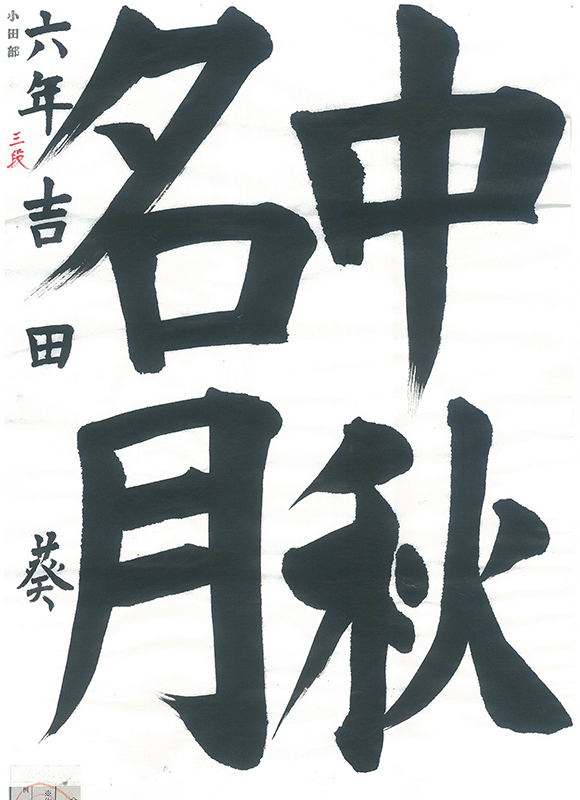 中秋
名月
六年 吉田 葵
三段
小田部